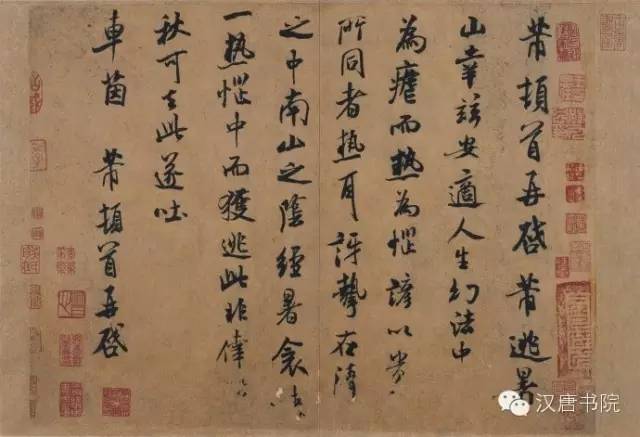 芾頓首再啓芾逃暑
山幸茲安適人生幻法中
為瘧而熱為惱諺以貴
所同者熱耳訝挈在清
之中南山之陰經暑衾
一熱惱中而獲逃此非倖
秋可去此遂吐
車茵 芾頓首再啓
汉唐书院